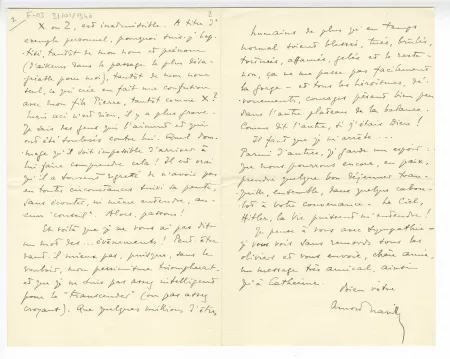 2
F-03 31/03/1940
2
X ou Z, est inadmissible. A titre d'
exemple personnel, pourquoi suis-je
tantôt de mon nom et prénom
(d'ailleurs dans le passage le plus désa-
gréable pour moi), tantôt de mon nom
seul, ce qui crée en fait une confusion
avec mon fils Pierre, tantôt comme X?
Mais ceci n'est rien, il y a plus grave.
Je sais des gens qui l'aiment et qui
ont été tous contre lui. Quel dom-
mage qu'il soit impossible d'arriver à
lui faire comprendre cela! Il est vrai
qu'il a souvent regretté de n'avoir pas
en toutes circonstances suivi sa pente,
sans écouter, ni même entendre, au-
cun "conseil". Alors, passons!
Et voilà que je ne vous ai pas dit
un mot des... évènements! Peut être
vaut-il mieux pas, puisque, sans le
vouloir, mon pessimisme triompherait,
et que je ne suis pas assez intelligent
pour le "transcender" (ou pas assez
croyant). Que quelques millions d'êtres
humains de plus qu'en temps
normal soient blessés, tués, brûlés,
torturés, affamés, gelés et le reste -
non, ça ne me passe pas facilement
la gorge - et tous les héroïsmes, dé-
vouements, courages pèsent bien peu
dans l'autre plateau de la balance.
Comme dit l'autre, si j'étais Dieu!
Il faut que je m'arrête...
Parmi d'autres, je garde un espoir:
que nous pourrons encore, en paix,
prendre quelque bon déjeuner tran-
quille, ensemble, dans quelque cabou-
lot à votre convenance. Le Ciel,
Hitler, la Vie puissent m'entendre!
Je pense à vous avec sympathie -
je vous vois sans remords sous les
oliviers et vous envoie, chère amie,
un message très amical, ainsi
qu'à Catherine.
Bien vôtre
Arnold Naville